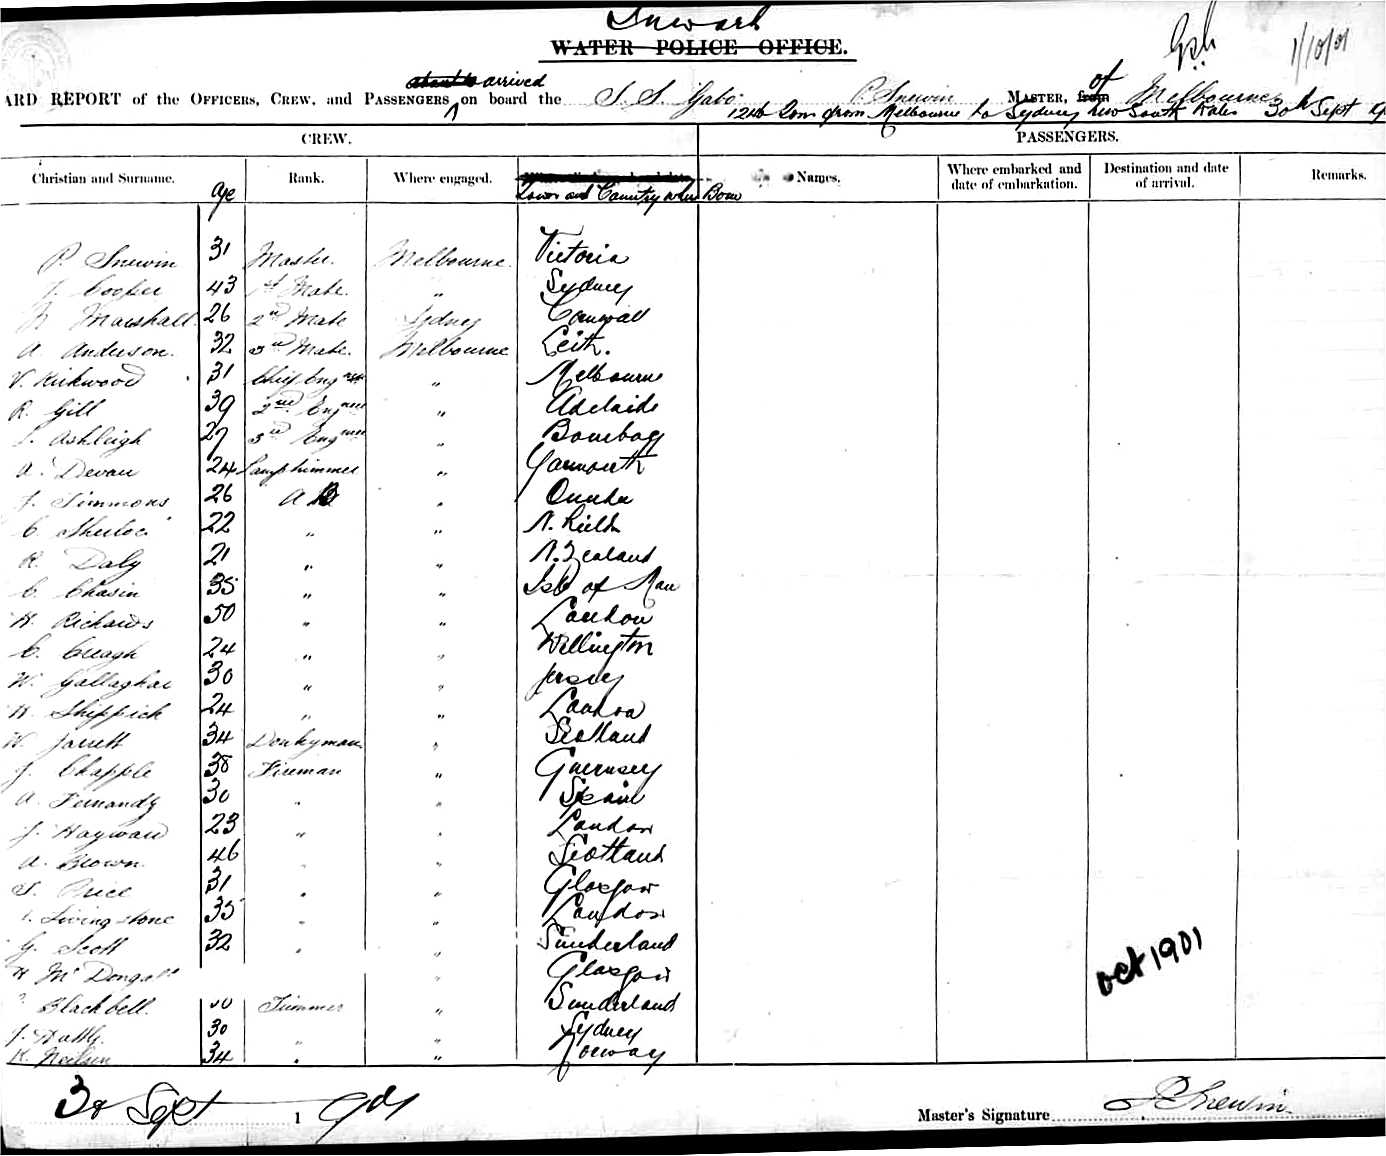 Inward
WATER POLICE OFFICE.
Gsh 1/10/01
arrived
ARD REPORT of the OFFICERS, CREW, and PASSENGERS on board the S. S. Gabo P. Snewin MASTER, of Melbourne
1240 Tons from Melbourne to Sydney New South Wales 30th Sept
CREW. PASSENGERS.
Christian and Surname. Age Rank. Where engaged. Town and Country where Born Names. Where embarked and date of embarkation. Destination and date of arrival. Remarks.
P. Snewin 31 Master Melbourne Victoria
J. Cooper 43 1st Mate " Sydney
Marshall 26 2nd Mate Sydney Cornwall
A. Anderson 32 3rd Mate Melbourne Leith.
Kirkwood 31 Chief Engneer " Melbourne
R. Gill 39 2nd Engneer " Adelaide
Ashleigh 27 3rd Engneer " Bombay
A. Devan 24 Lamptrimmer " Yarmouth
J. Simmons 26 AB "
C. 22 " " N. Shields
R. Daly 21 " " N. Zealand
C. Chasin 35 " " Isle of Man
H. Richards 50 " " London
C. Creagh 24 " " Wellington
W. Gallaghar 30 " " Jersey
H. Shippick 24 " " London
W. Jarrett 34 Donkyman " Scotland
J. Chapple 38 Fireman " Guernsey
A. Fernandz 30 " " Spain
J. Hayward 23 " " London
A. Brown 46 " " Scotland
S. Price 31 " " Glasgow
Livingstone 35 " " London
G. Scott 32 " " Sunderland
H McDongall " Glasgow
Blackbell. 30 Trimmer " Sunderland
J. 30 " " Sydney
K. Neilsen 34 " " Norway
Oct 1901
30 Sept 1901
Master's Signature P Snewin